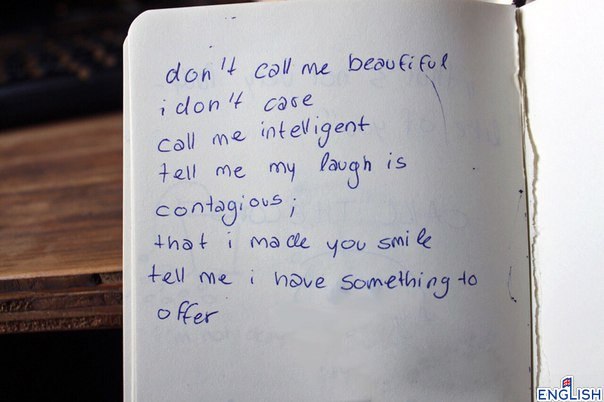 don't call me beautiful
i don't care
call me intelligent
tell me my laugh is
contagious;
that i made you smile
tell me i have something to
offer
ENGLISH